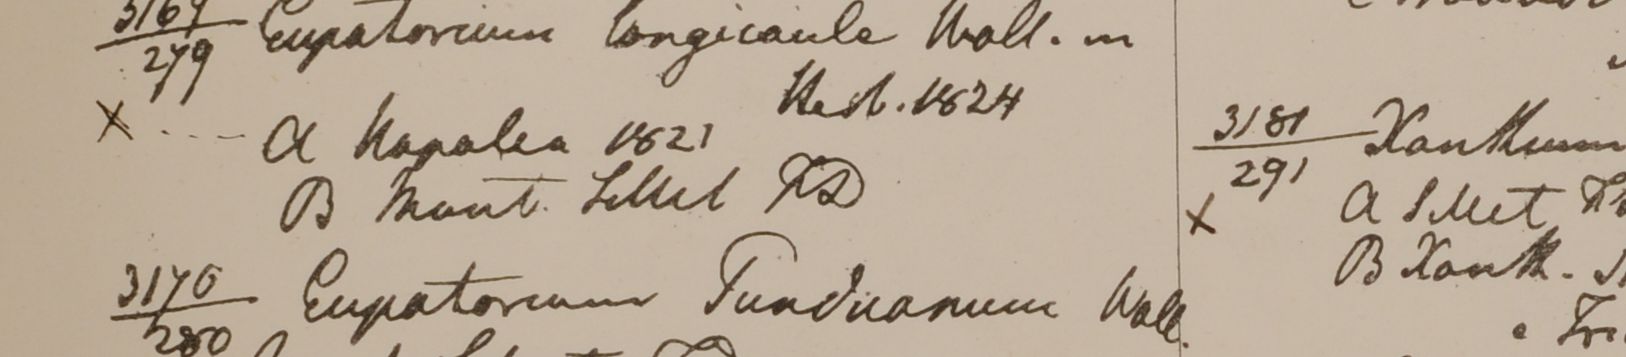 3169 Eupatorium longicaule Wall. in
279
Herb. 1824
X ---- A Napalea 1821
B Mont. Sillet FD
3170 Eupatorium Punduanum Wall.
280
3181 Xanthium
291
X A Sillet
B Xanth.